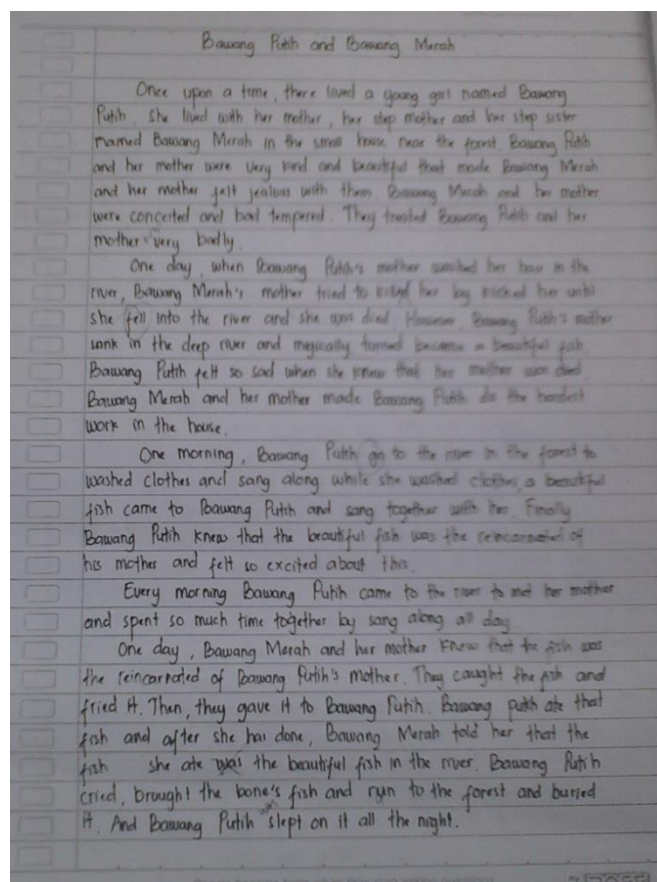 Bawang Putih and Bawang Merah
Once upon a time, there loved a young girl named Bawang
Putih. She lived with her mother, her step mother and her step sister
named Bawang Merah in the small house near the forest. Bawang Putih
and her mother were very kind and beautiful that made Bawang Merah
and her mother felt jealous with them. Bawang Merah and her mother
were conceited and bad tempered. They treated Bawang Putih and her
mother very badly.
One day, when Bawang Putih's mother washed her hair in the
river, Bawang Merah's mother tried to killed her by kicked her until
she fell into the river and she was died. However, Bawang Putih's mother
sank in the deep river and magically turned became a beautiful fish
Bawang Putih felt so sad when she knew that her mother was died
Bawang Merah and her mother made Bawang Putih do the hardest
work in the house.
One morning, Bawang Putih go to the river in the forest to
washed clothes and sang along while she washed clothes, a beautiful
fish came to Bawang Putih and sang together with her. Finally
Bawang Putih knew that the beautiful fish was the reincarnated of
his mother and felt so excited about this.
Every morning Bawang Putih came to the river to met her mother
and spent so much time together by sang along all day.
One day, Bawang Merah and her mother knew that the fish was
the reincarnated of Bawang Putih's mother. They caught the fish and
fried it. Then, they gave it to Bawang Putih. Bawang putih ate that
fish and after she has done, Bawang Merah told her that the
fish she ate was the beautiful fish in the river. Bawang Putih
cried, brought the bone's fish and run to the forest and buried
it. And Bawang Putih was slept on it all the night.